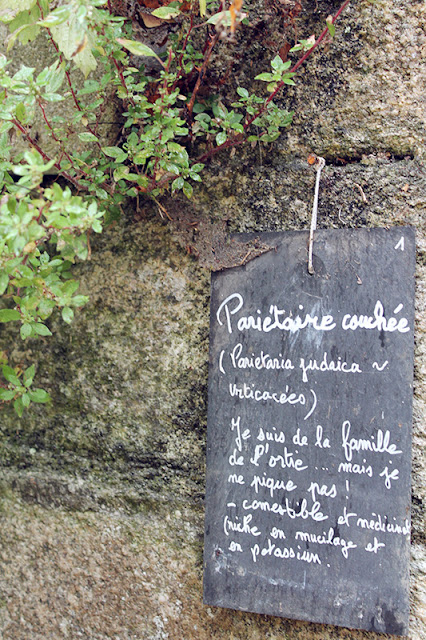 1
Pariétaire couchée
(Parietaria judaica ~
Urticacées)
Je suis de la famille
de l'ortie ... mais je
ne pique pas !
- comestible et médicinal
(riche en mucilage et
en potassium.